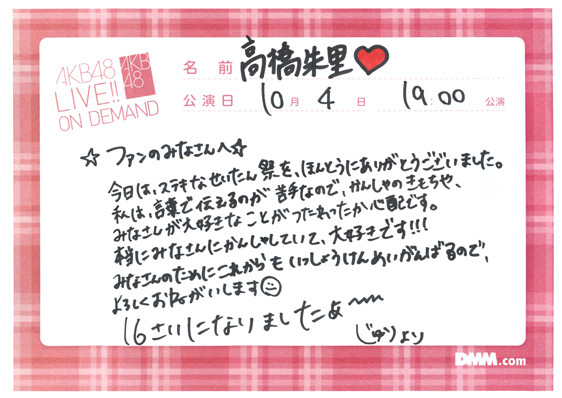 AKB48
LIVE!!
ON DEMAND
AKB
48
名 前 高橋朱里♥
公演日 10月 4日 19:00 公演
☆ ファンのみなさんへ☆
今日は、ステキなせいたん祭を、ほんとうにありがとうございました。
私は、言葉で伝えるのが苦手なので、かんしゃのきもちや、
みなさんが大好きなことがつたわったか心配です。
本当にみなさんにかんしゃしていて、大好きです!!!
みなさんのためにこれからもいっしょうけんめいがんばるので、
よろしくおねがいします☺
16さいになりましたょ〜〜
じゅりより
DMM.com